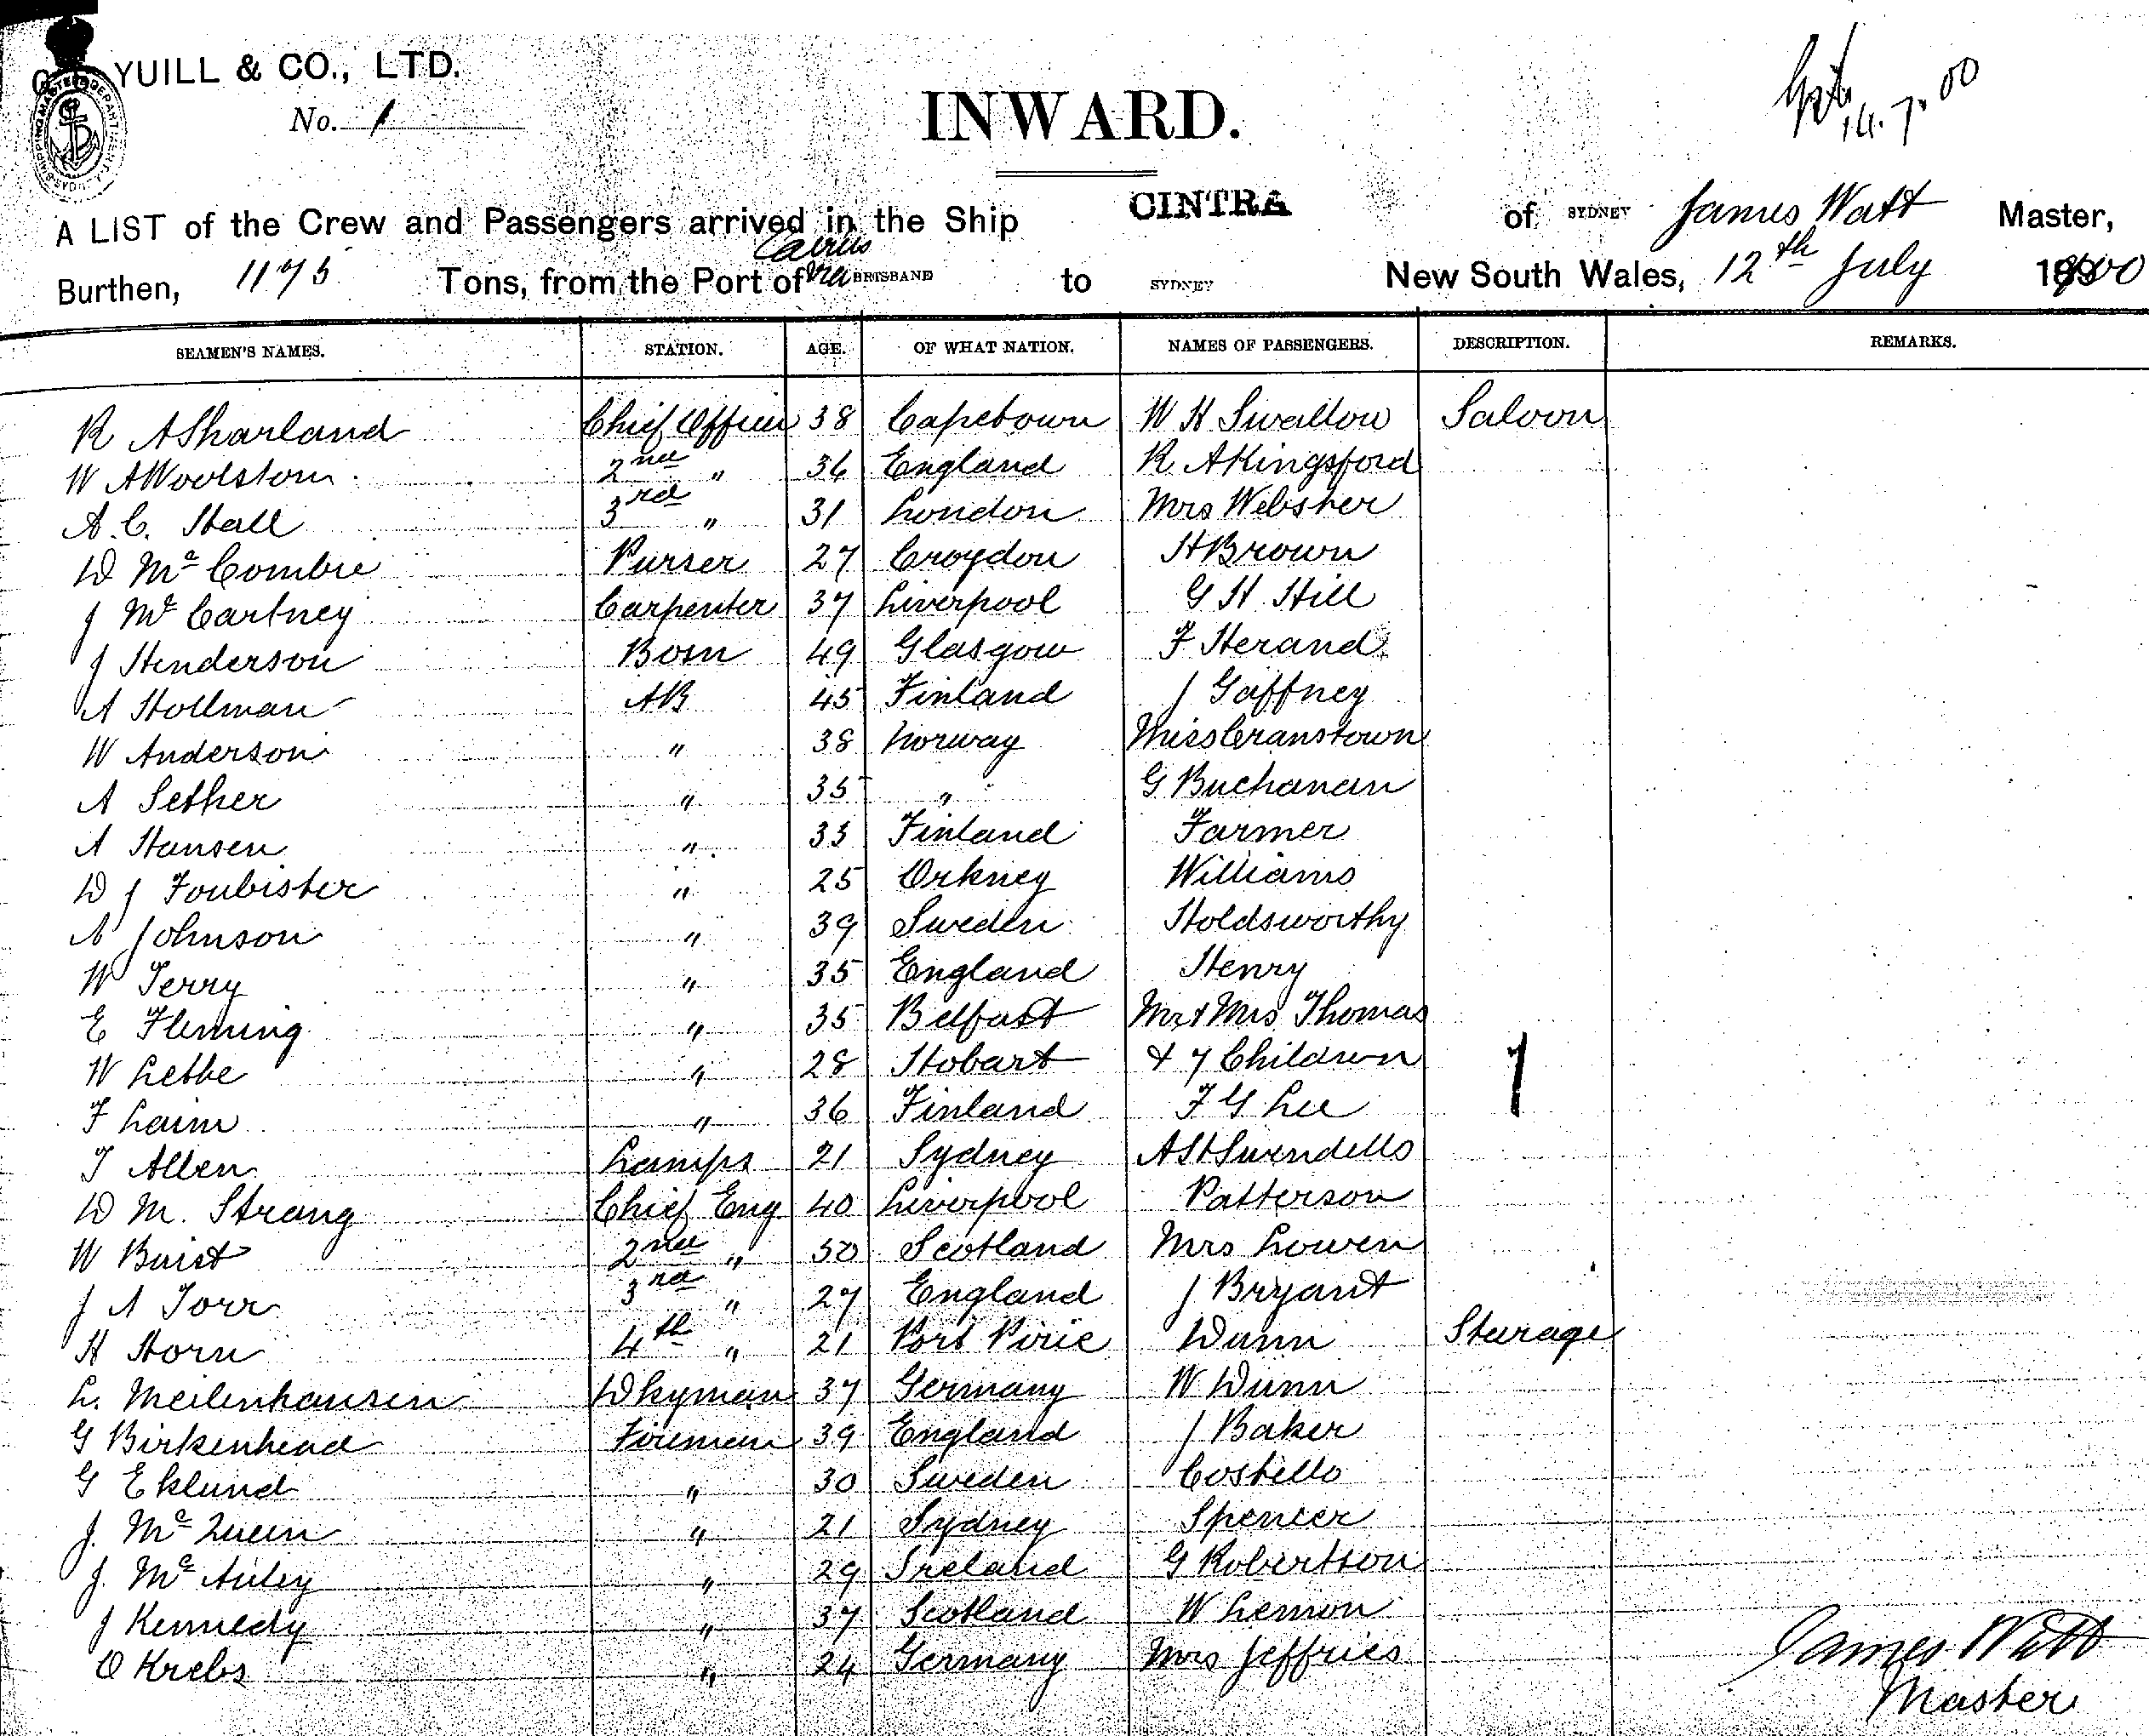 YUILL & CO., LTD.
No. 1
INWARD.
14.7.00
A LIST of the Crew and Passengers arrived in the Ship CINTRA of SYDNEY James Watt Master,
Cairns
Burthen, 1175 Tons, from the Port of via BRISBANE to SYDNEY New South Wales, 12th July 1900
SEAMEN'S NAMES. STATION. AGE. OF WHAT NATION. NAMES OF PASSENGERS. DESCRIPTION. REMARKS.
R A Sharland Chief Officer 38 Capetown W H Swallow Saloon
W A Woolston 2nd " 36 England R A Kingsford
A. C. Hall 3rd " 31 London Mrs Webster
D Mc Combie Purser 27 Croydon H Brown
J Mc Cartney Carpenter 37 Liverpool G H Hill
J Henderson Bosn 49 Glasgow F Herand
A Hollman AB 45 Finland J Gaffney
W Anderson " 38 Norway Miss Cranstown
A Sether " 35 " G Buchanan
A Hansen " 33 Finland Farmer
D J Foubister " 25 Orkney Williams
A Johnson " 39 Sweden Holdsworthy
W Terry " 35 England Henry
E Fleming " 35 Belfast Mr & Mrs Thomas
W Lette " 28 Hobart & 7 Children 7
F Laim " 36 Finland F G Lee
T Allen Lamps 21 Sydney A St Swindells
D M. Strang Chief Eng 40 Liverpool Patterson
W Buist 2nd " 50 Scotland Mrs Lowen
J A Torr 3rd " 27 England J Bryant
H Horn 4th " 21 Port Pirie Dunn Sturage
L. Meilenhausen Dkyman 37 Germany W Dunn
G Birkenhead Fireman 39 England J Baker
G Eklund " 30 Sweden Costello
J. Mc Queen " 21 Sydney Spencer
J. Mc Auley " 29 Ireland G Robertson
J Kennedy " 37 Scotland W Lemon
O Krebs " 24 Germany Mrs Jeffries
James Watt
Master